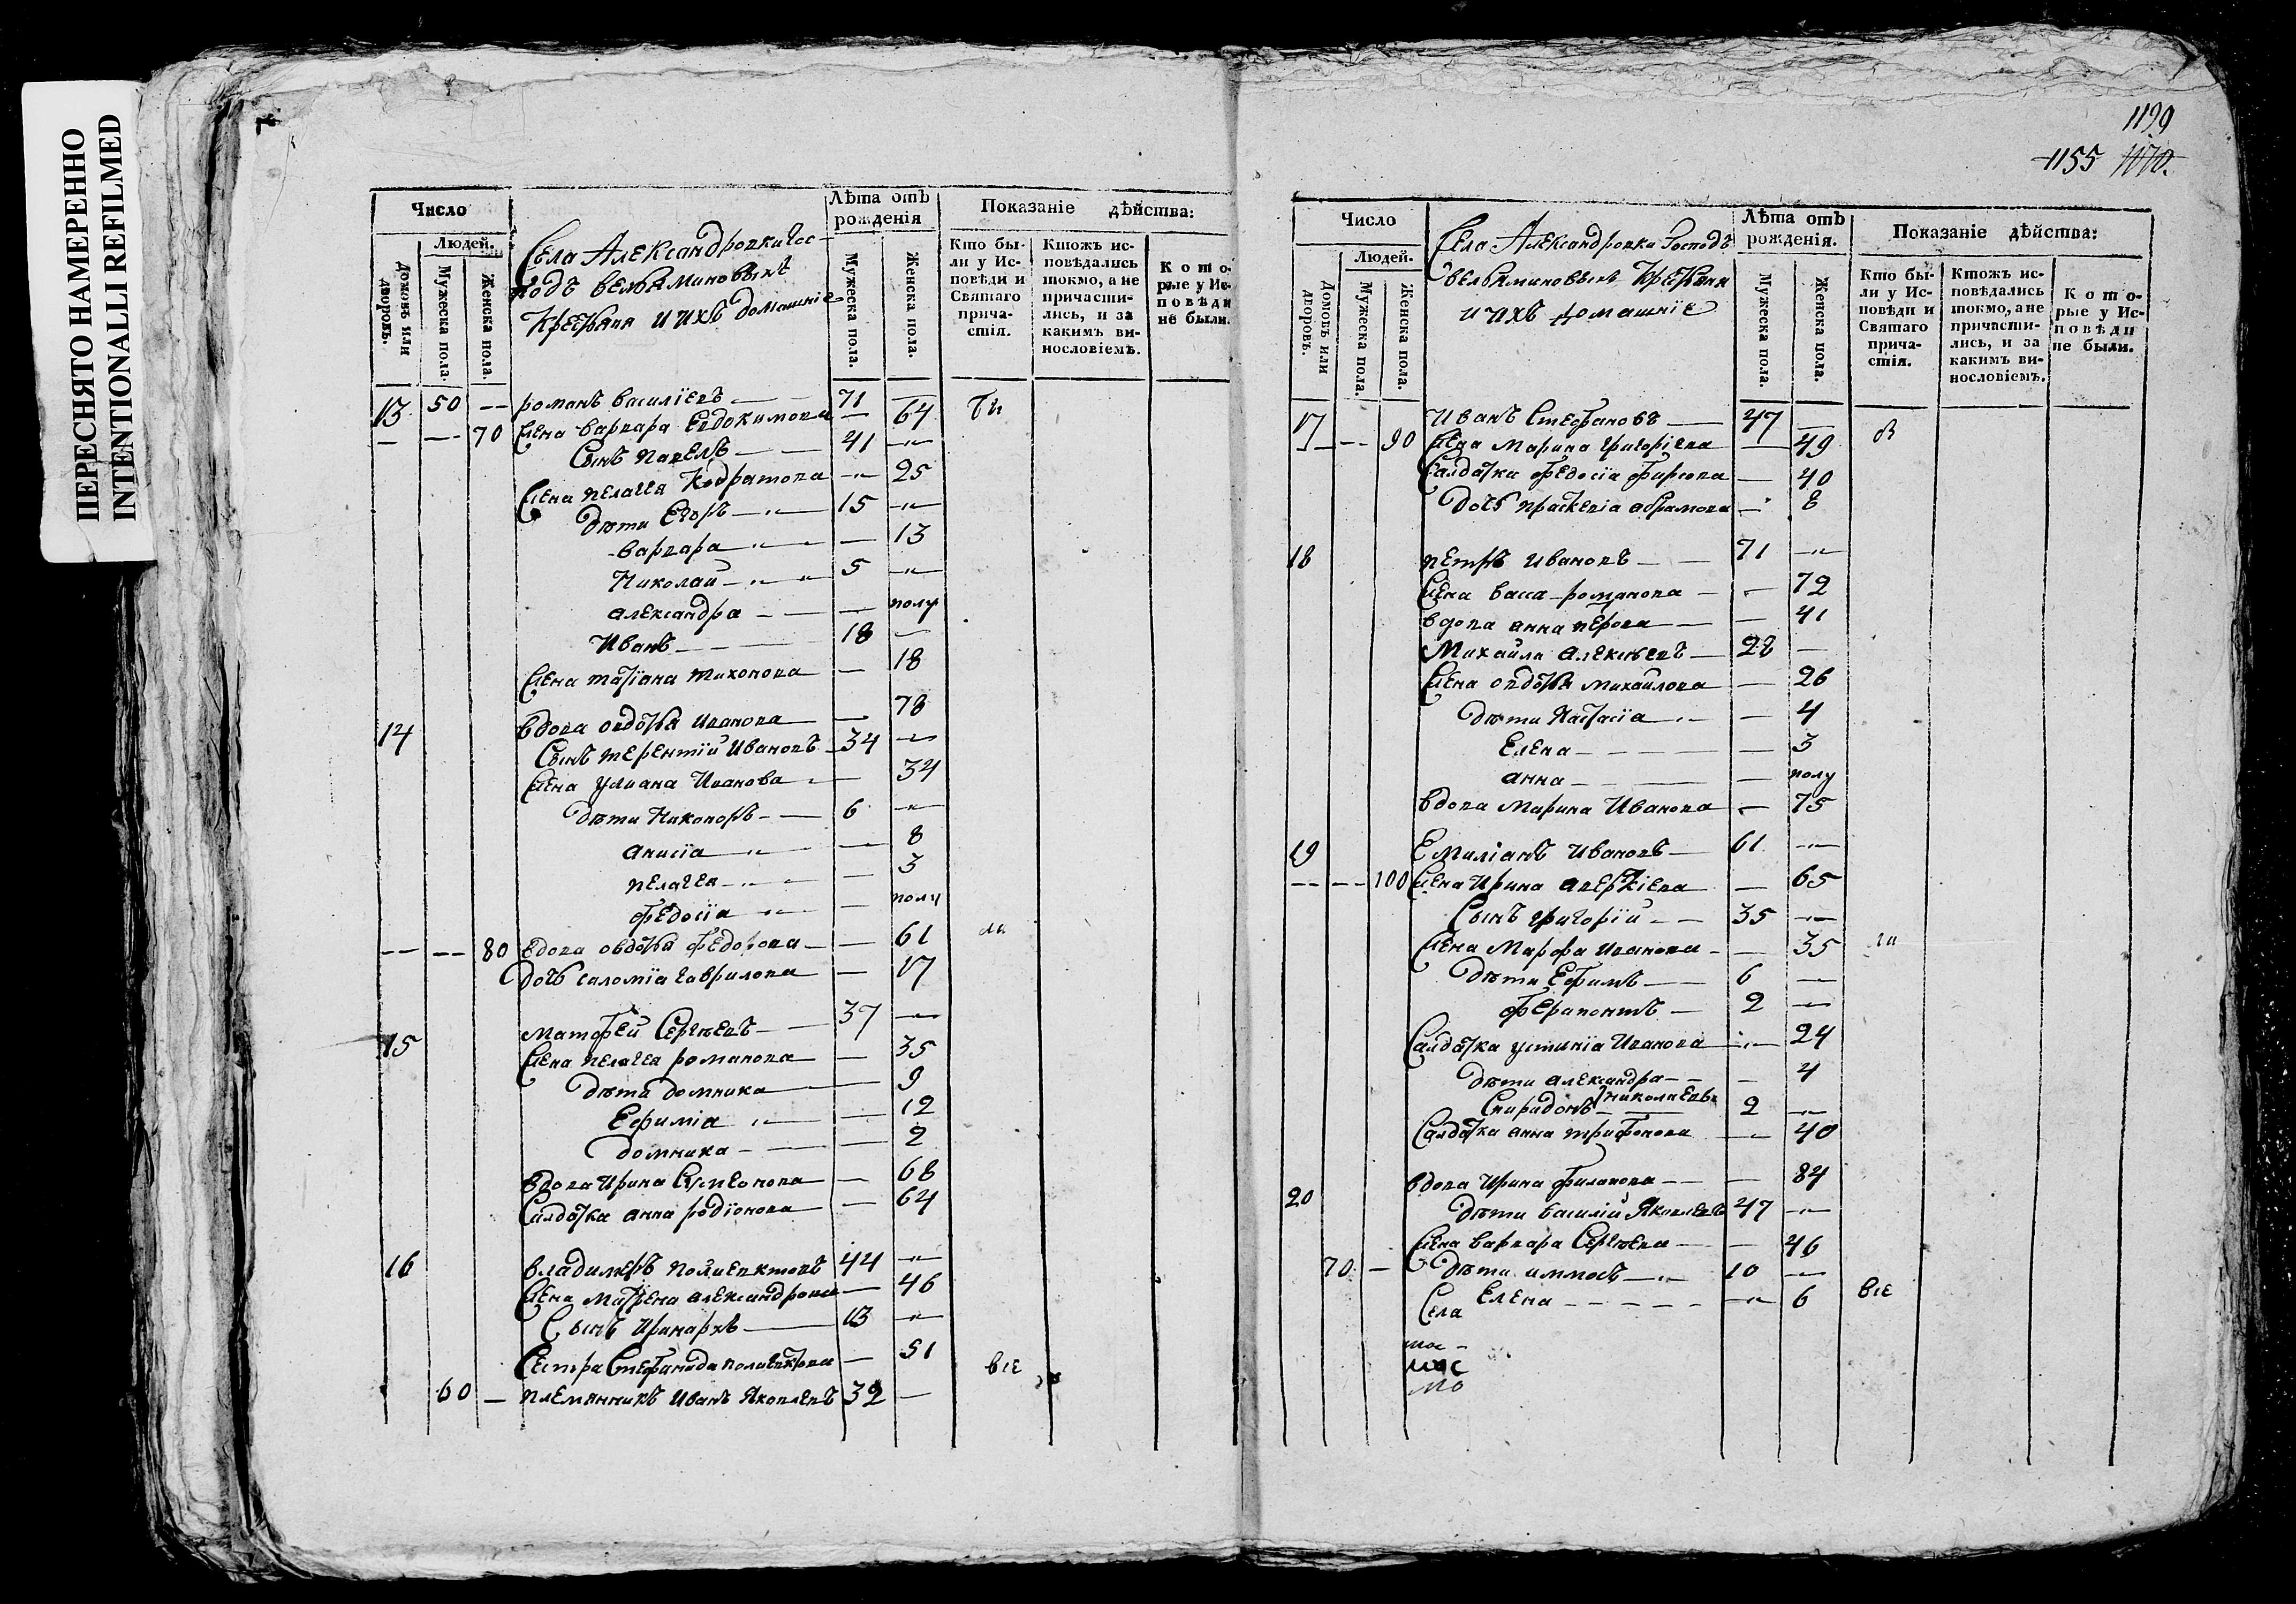 ПЕРЕСНЯТО НАМЕРЕННО
INTENTIONALLI REFILMED
Число
Людей.
Домовъ или дворовъ.
Мужеска пола.
Женска пола.
Села Александровки Гос-
подъ вельяминовыхъ
крестьяня и ихъ домашніе
Лѣта отъ рожденія
Мужеска пола.
Женска пола.
Показаніе дѣйства:
Кто бы-
ли у Ис-
повѣди и
Святаго
прича-
стія.
Ктожъ ис-
повѣдались
токмо, а не
причасти-
лись, и за
какимъ ви-
нословіемъ.
Кото-
рые у Ис-
повѣди
не были.
13 50 -- романъ василіевъ — 71 —
— -- 70 жена варвара Евдокимова — 64
Сынъ павелъ — 41 —
жена пелагея Кодратова — 25
дѣти Егоръ — 15 —
варвара — 13
Николай — 5 —
александра — полу
Иванъ — 18 —
жена татіана тихонова — 18
14 вдова овдотья иванова — 78
Сынъ терентій Ивановъ 34 —
жена улиана Иванова — 34
дѣти Никоноръ — 6 —
анисіа — 8
пелагея — 3
федосіа — полу
-- -- 80 вдова овдотья федорова — 61 ли
дочь саломіа гаврилова — 17
15 матфей Сергѣевъ — 37 —
жена пелагея романова — 35
дѣти домника — 9
Ефиміа — 12
домника — 2
вдова Ирина Сүмеонова — 68
Салдатка анна родіонова — 64
16 владимеръ полиевктовъ 44 —
жена матрена александрова — 46
Сынъ Иринархъ — 13 —
Сестра Стефанида полиевктова — 51 все
60 — племянникъ Иванъ Яковлевъ 32 —
1199
1155 1170.
Число
Людей.
Домовъ или дворовъ.
Мужеска пола.
Женска пола.
Села Александровки Господъ
вельяминовыхъ крестьяня
и ихъ домашніе
Лѣта отъ рожденія.
Мужеска пола.
Женска пола.
Показаніе дѣйства:
Кто бы-
ли у Ис-
повѣди и
Святаго
прича-
стія.
Ктожъ ис-
повѣдались
токмо, а не
причасти-
лись, и за
какимъ ви-
нословіемъ.
Кото-
рые у Ис-
повѣди
не были.
17 Иванъ Стефановъ — 47 —
-- 90 жена Марина григоріева — 49
Салдатка федосіа фирсова — 40
дочь праскевіа абрамова — 8
18 петръ ивановъ — 71 —
жена васса романова — 72
вдова анна — 41
Михайла алексѣевъ — 28 —
жена овдотья михайлова — 26
дѣти Настасіа — 4
Елена — 3
анна — полу
вдова Марина Иванова — 75
19 Емиліанъ Ивановъ — 61 —
-- -- 100 жена Ирина аверкіева — 65
Сынъ григорій — 35 —
жена Марфа иванова — 35 ли
дѣти Ефимъ — 6 —
ферапонтъ — 2 —
Салдатка устиніа Иванова — 24
дѣти александра — 4
Спиридонъ Николаевы 2 —
Салдатка анна трифонова — 40
20 вдова Ирина филапова — 84
дѣти василій Яковлевъ 47 —
жена варвара Сергѣева — 46
70 — дѣти аммосъ — 10 —
Елена — 6 все
Села